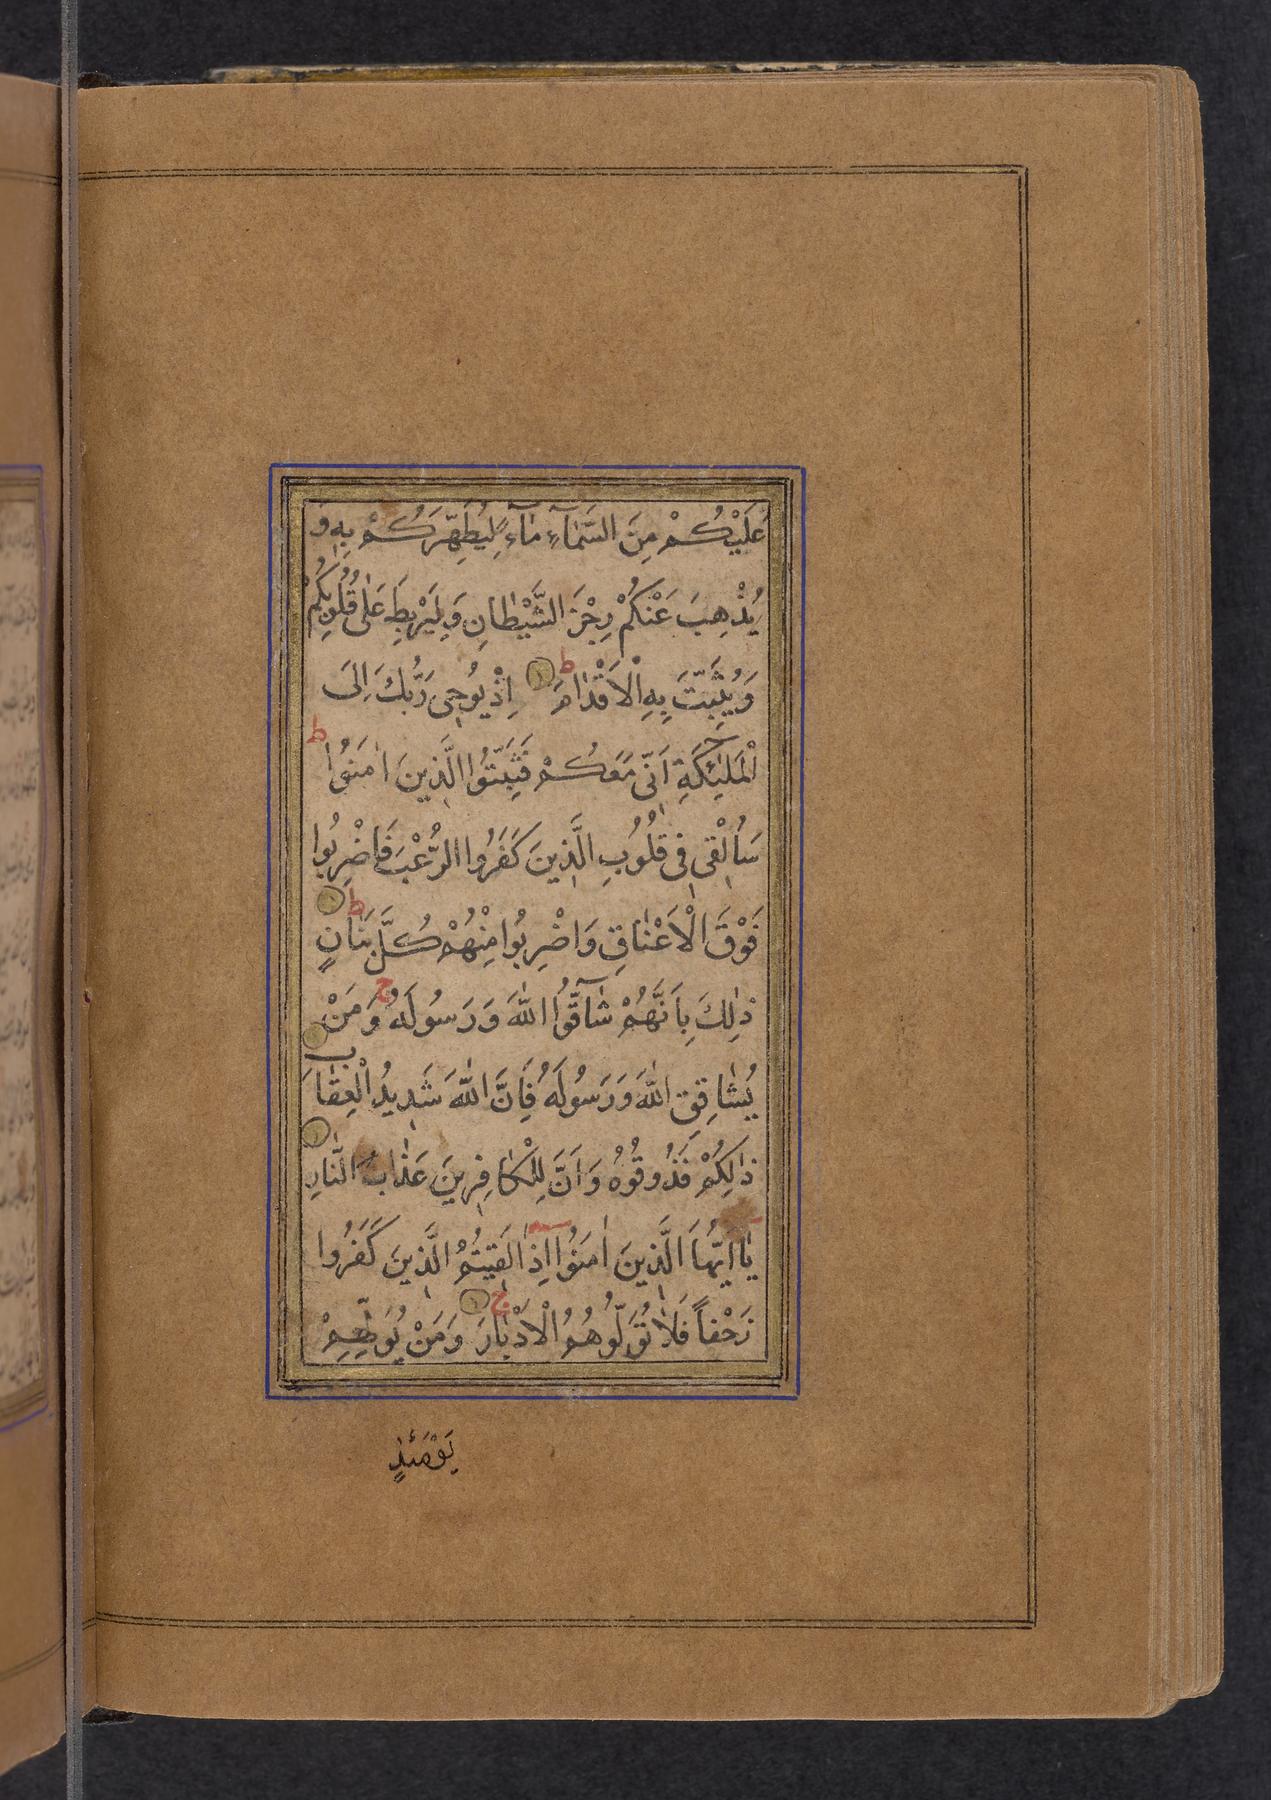 عَلَيْكُمْ مِنَ السَّمَآءِ مَآءً لِيُطَهِّرَكُمْ بِهِ وَ
يُذْهِبَ عَنْكُمْ رِجْزَ الشَّيْطَانِ وَلِيَرْبِطَ عَلٰى قُلُوبِكُمْ
وَيُثَبِّتَ بِهِ الْاَقْدَامَ ط اِذْ يُوحِى رَبُّكَ اِلَى
الْمَلٰئِكَةِ اَنِّى مَعَكُمْ فَثَبِّتُوا الَّذِينَ اٰمَنُوا ط
سَاُلْقِى فِى قُلُوبِ الَّذِينَ كَفَرُوا الرُّعْبَ فَاضْرِبُوا
فَوْقَ الْاَعْنَاقِ وَاضْرِبُوا مِنْهُمْ كُلَّ بَنَانٍ ط
ذٰلِكَ بِاَنَّهُمْ شَآقُّوا اللّٰهَ وَرَسُولَهُ ج وَمَنْ
يُشَاقِقِ اللّٰهَ وَرَسُولَهُ فَاِنَّ اللّٰهَ شَدِيدُ الْعِقَابِ
ذٰلِكُمْ فَذُوقُوهُ وَاَنَّ لِلْكَافِرِينَ عَذَابَ النَّارِ
يَا اَيُّهَا الَّذِينَ اٰمَنُوا اِذَا لَقِيتُمُ الَّذِينَ كَفَرُوا
زَحْفاً فَلَا تُوَلُّوهُمُ الْاَدْبَارَ ج وَمَنْ يُوَلِّهِمْ
يَوْمَئِذٍ